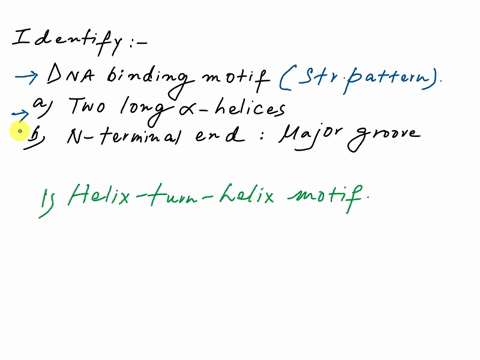 Identify :-
→ DNA binding motif (Str. pattern).
→ a) Two long α-helices
b) N-terminal end : Major groove
1) Helix-turn-helix motif.